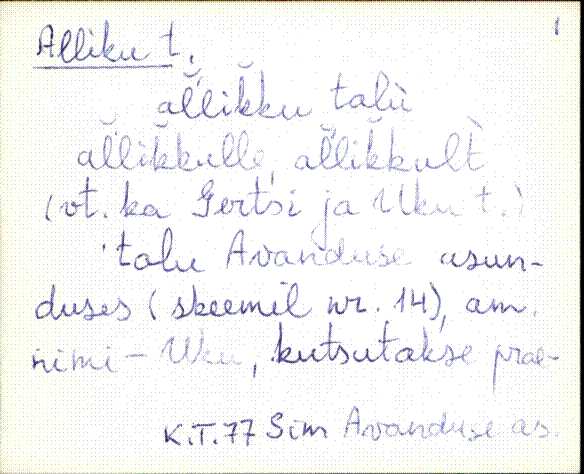 1
Alliku t.
al̆likku talù
al̆likkulle, al̆likkult
(vt. ka Gertsi ja Uku t.)
talu Avanduse asun-
duses (skeemil nr. 14), am.
nimi - Uku, kutsutakse prae-
K.T.77 Sim Avanduse as.